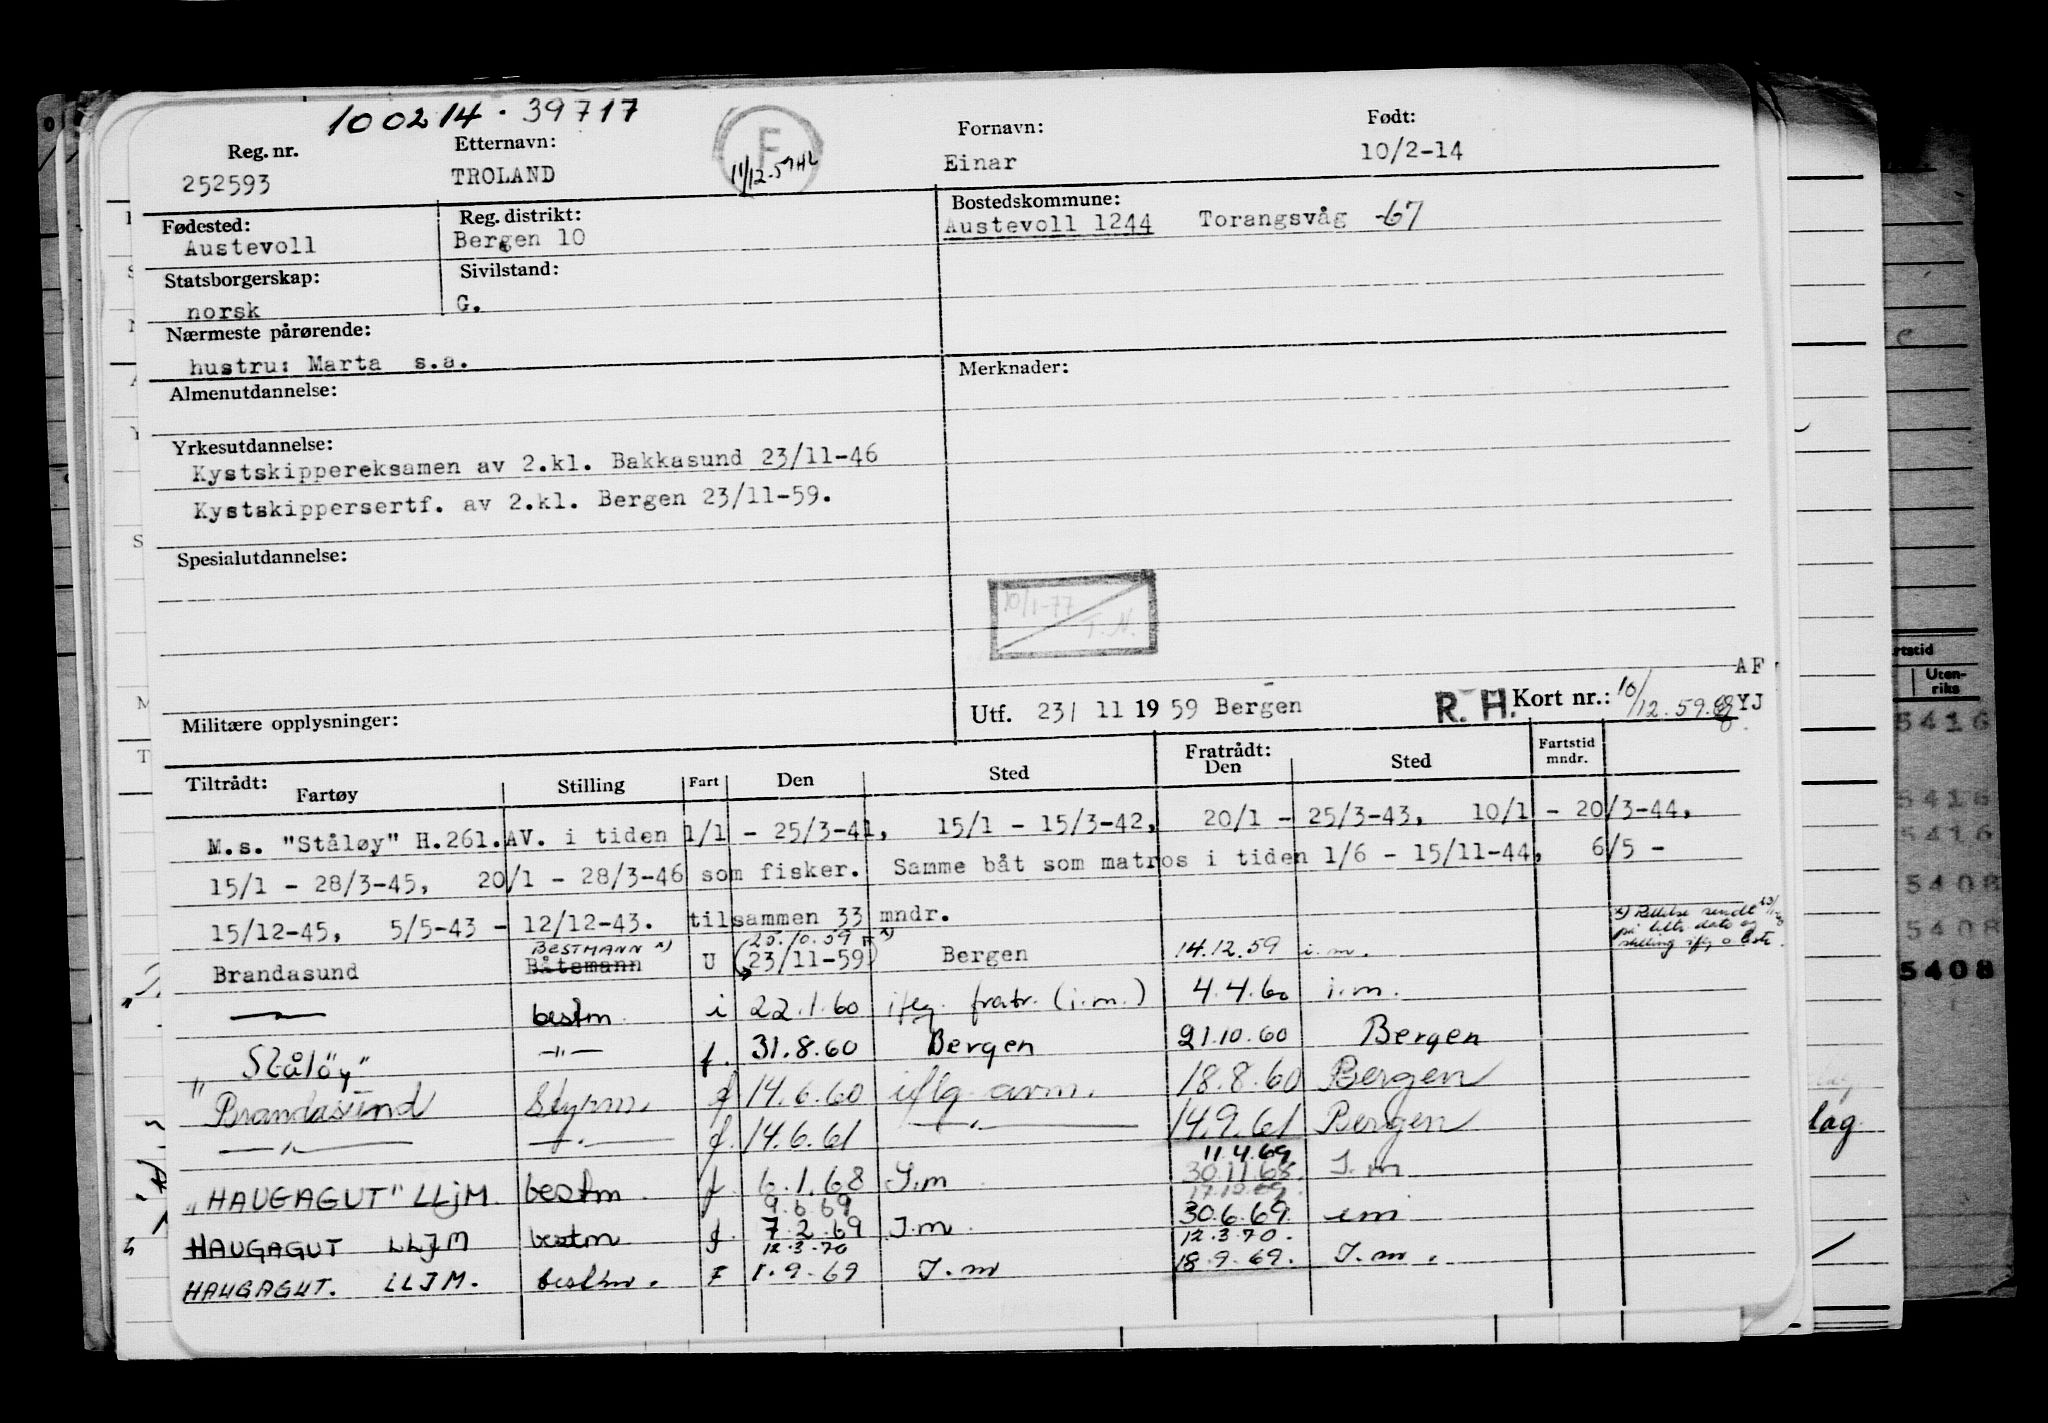 100214 · 39717
Reg. nr. Etternavn: F Fornavn: Født:
252593 TROLAND 11/12.59 HL Einar 10/2-14
Fødested: Reg. distrikt: Bostedskommune:
Austevoll Bergen 10 Austevoll 1244 Torangsvåg -67
Statsborgerskap: Sivilstand:
norsk G.
Nærmeste pårørende:
hustru: Marta s.a.
Almenutdannelse: Merknader:
Yrkesutdannelse:
Kystskippereksamen av 2.kl. Bakkasund 23/11-46
Kystskippersertf. av 2.kl. Bergen 23/11-59.
Spesialutdannelse:
10/1-77
T.N.
AF
Militære opplysninger: Utf. 23/ 11 19 59 Bergen R. H. Kort nr.: 10/12.59. YJ
Tiltrådt: Fratrådt:
Fartøy Stilling Fart Den Sted Den Sted Fartstid mndr.
M.s. "Ståløy" H.261.AV. i tiden 1/1 - 25/3-41, 15/1 - 15/3-42, 20/1 - 25/3-43, 10/1 - 20/3-44,
15/1 - 28/3-45, 20/1 - 28/3-46 som fisker. Samme båt som matros i tiden 1/6 - 15/11-44, 6/5 -
15/12-45, 5/5-43 - 12/12-43. tilsammen 33 mndr.
BESTMANN x) 25.10.59 x) x) Rettelse sendt
Brandasund Båtsmann U (23/11-59) Bergen 14.12.59 i.m.
—"— bestm. i 22.1.60 iflg. fratr. (i.m.) 4.4.60 i.m.
"Ståløy" —"— f. 31.8.60 Bergen 21.10.60 Bergen
Brandasund Styrm. f 14.6.60 iflg. avm. 18.8.60 Bergen
—"— —"— f. 14.6.61 —"— 14.9.61 Bergen
11.4.69
"HAUGAGUT" LLJM bestm. f. 6.1.68 I.m 30.11.68. I.m
9.6.69 17.10.69.
HAUGAGUT LLJM bestm f. 7.2.69 I.m. 30.6.69. im
12.3.70 12.3.70.
HAUGAGUT. LLJM. bestm. F 1.9.69 I.m 18.9.69. I.m.
rtstid
Uten-
riks
5416
5416
5416
5408
5408
5408
lag